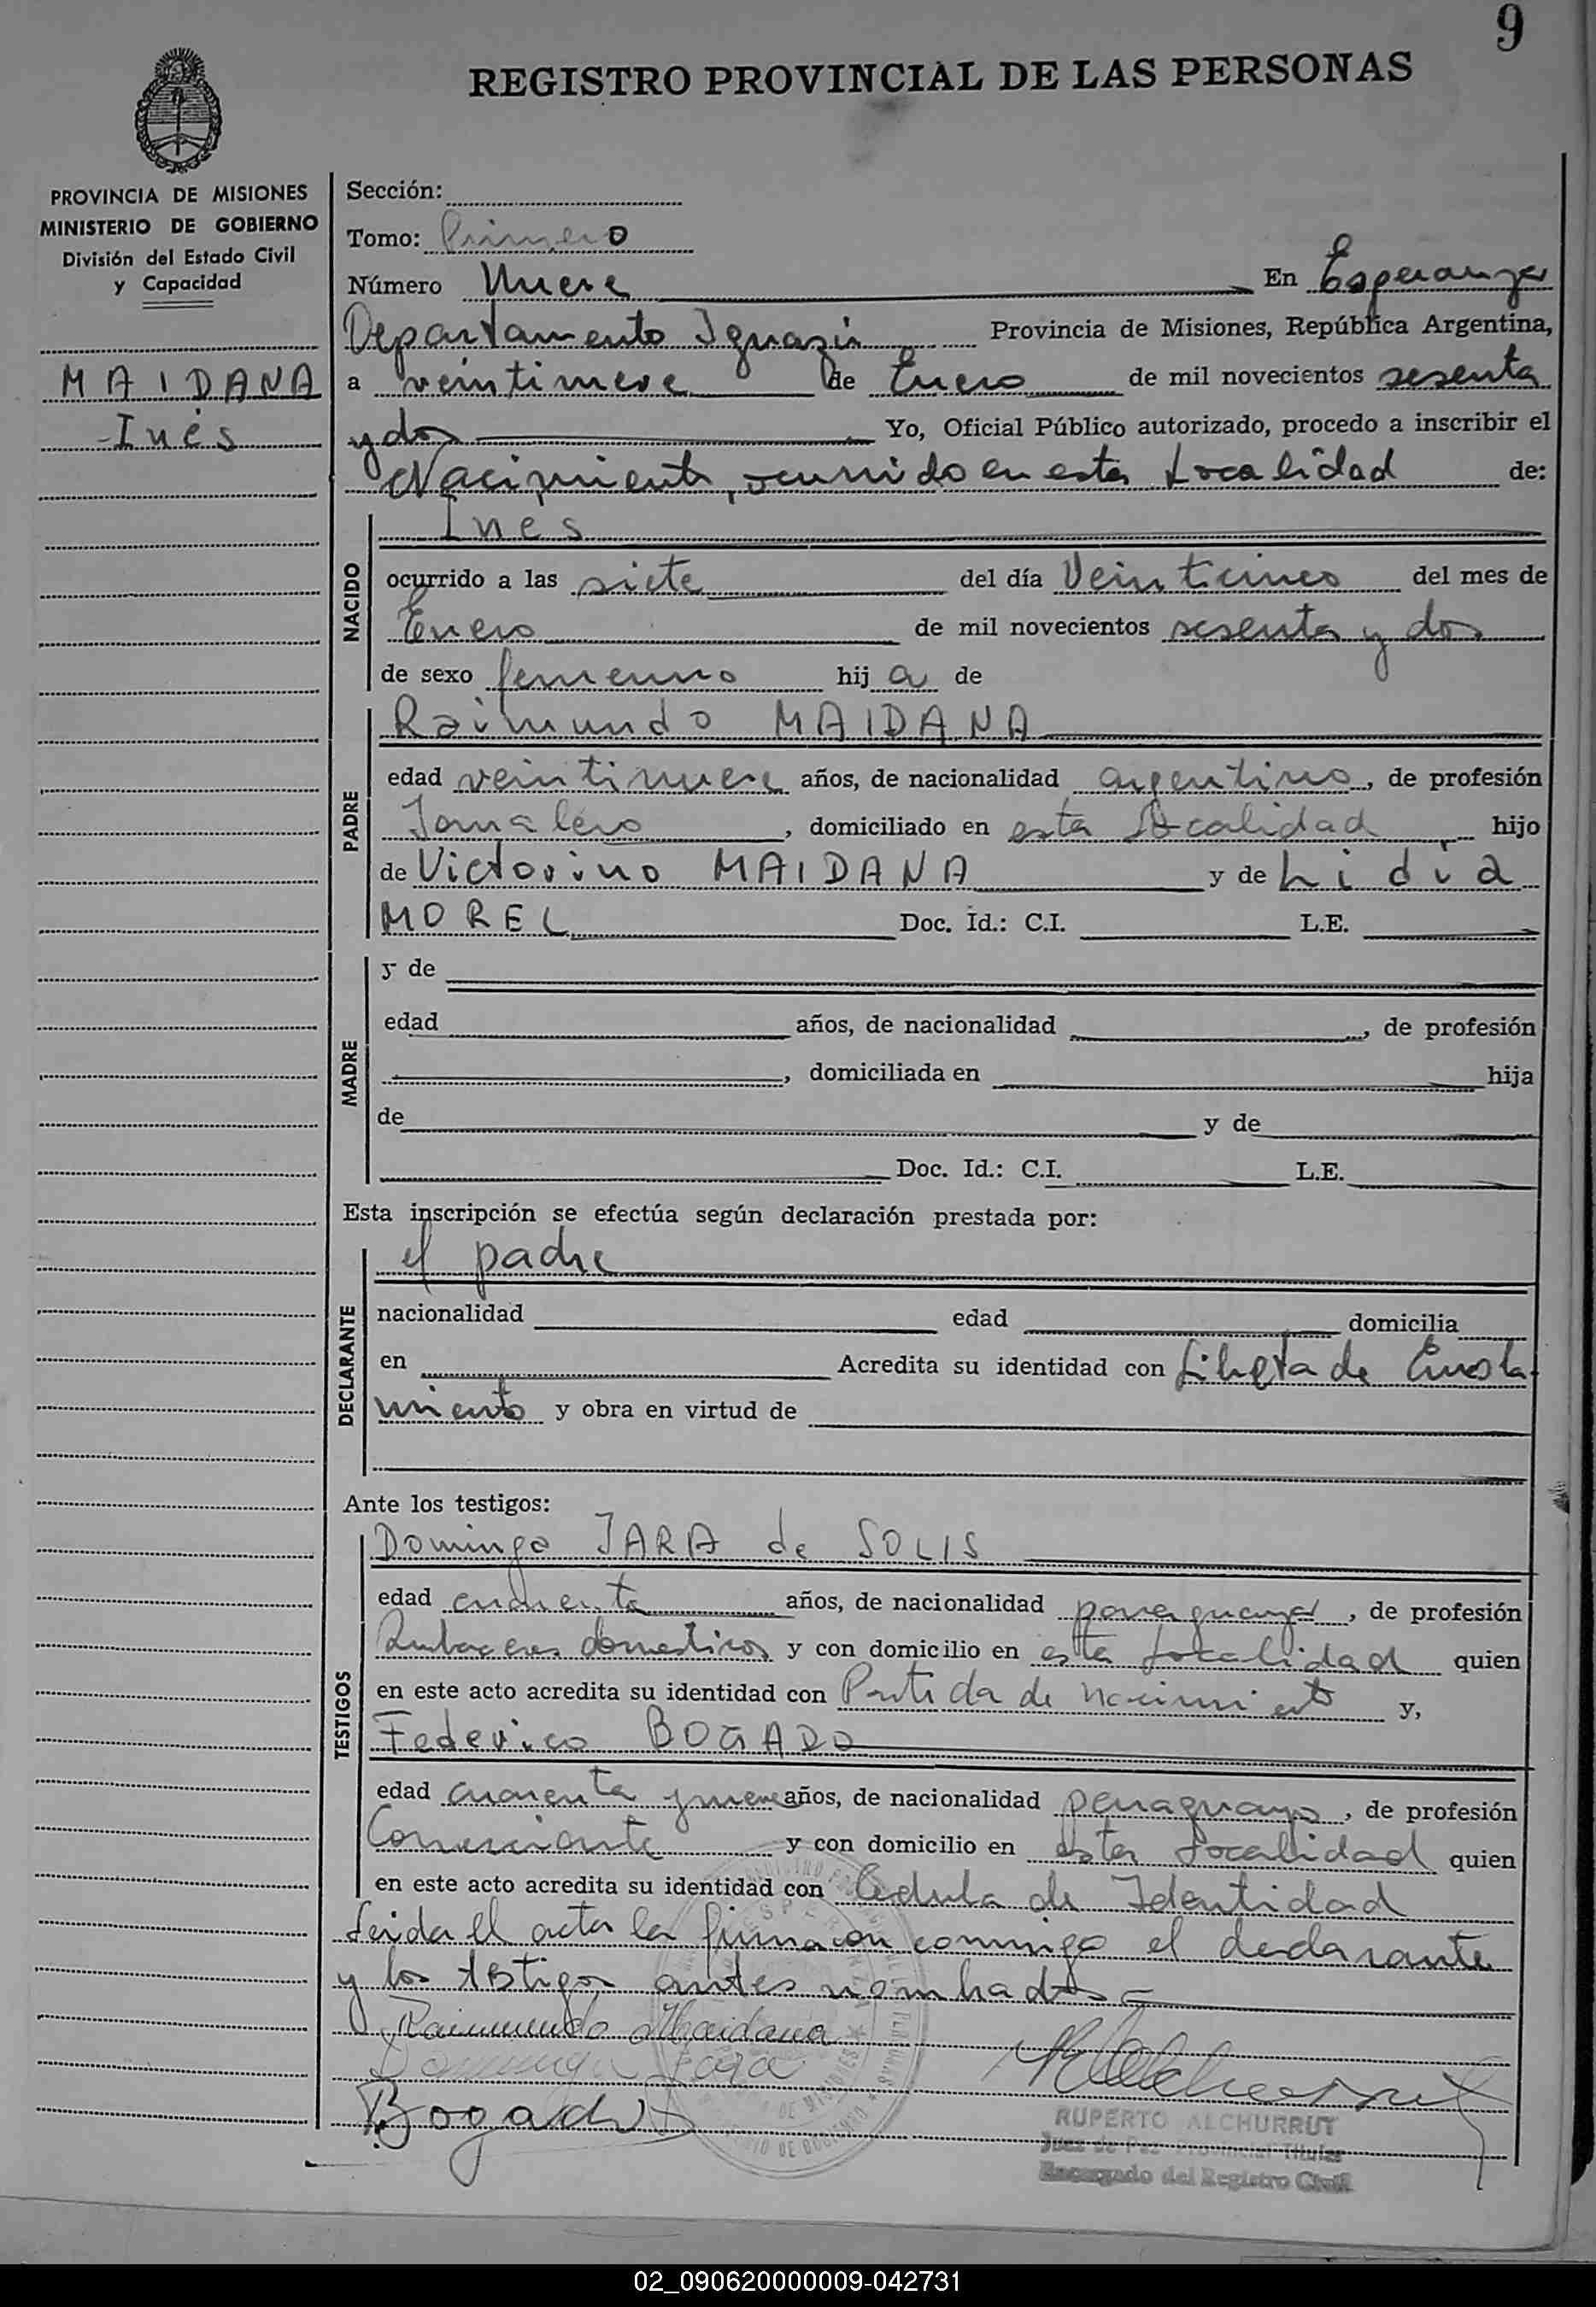 9
REGISTRO PROVINCIAL DE LAS PERSONAS
PROVINCIA DE MISIONES
MINISTERIO DE GOBIERNO
División del Estado Civil
y Capacidad
MAIDANA
Inés
Sección:
Tomo: Primero
Número Nueve En Esperanza
Departamento Iguazú Provincia de Misiones, República Argentina,
a veintinueve de Enero de mil novecientos sesenta
y dos Yo, Oficial Público autorizado, procedo a inscribir el
Nacimiento, ocurrido en esta Localidad de:
NACIDO
Inés
ocurrido a las siete del día Veinticinco del mes de
Enero de mil novecientos sesenta y dos
de sexo femenino hij a de
PADRE
Raimundo MAIDANA
edad veintinueve años, de nacionalidad argentino, de profesión
Jornalero, domiciliado en esta Localidad hijo
de Victorino MAIDANA y de Lidia
MOREL Doc. Id.: C.I. L.E.
MADRE
y de
edad años, de nacionalidad , de profesión
, domiciliada en hija
de y de
Doc. Id.: C.I. L.E.
Esta inscripción se efectúa según declaración prestada por:
DECLARANTE
el padre
nacionalidad edad domicilia
en Acredita su identidad con Libreta de Enrola
miento y obra en virtud de
Ante los testigos:
TESTIGOS
Dominga JARA de SOLIS
edad años, de nacionalidad paraguaya, de profesión
Quehaceres domesticos y con domicilio en esta Localidad quien
en este acto acredita su identidad con Partida de nacimiento y,
Federico BOGADO
edad cuarenta y nueve años, de nacionalidad paraguayo, de profesión
Comerciante y con domicilio en esta Localidad quien
en este acto acredita su identidad con Cedula de Identidad
Leida el acta la firmaron conmigo el declarante
y los testigos antes nombrados=
Raimundo Maidana
Dominga Jara
Bogado
RUPERTO ALCHURRUT
Juez de Paz Provincial Titular
Encargado del Registro Civil
02_090620000009-042731